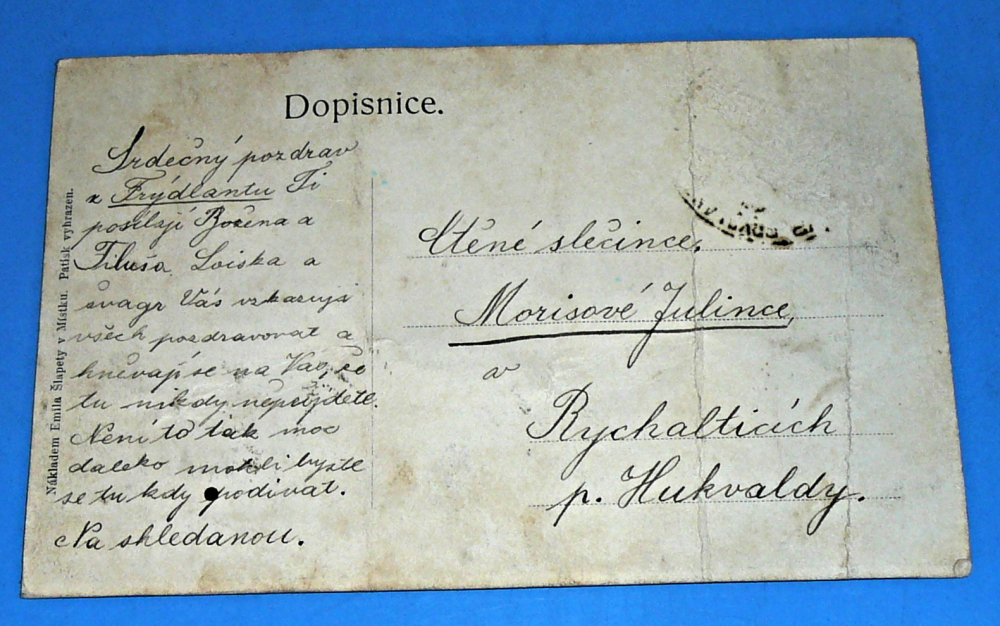 Dopisnice.
Srdečný pozdrav
z Frýdlantu Ti
posílají Božena a
Filuša, Loiska a
švagr Vás vzkazují
všech pozdravovat a
hněvají se na Vás, že
tu nikdy nepřijdete.
Není to tak moc
daleko mohli byste
se tu kdy podívat.
Na shledanou.
Ctěné slečince,
Morisové Julince,
v
Rychalticích
p. Hukvaldy.
Nákladem Emila Šlapety v Místku. Patisk vyhrazen.